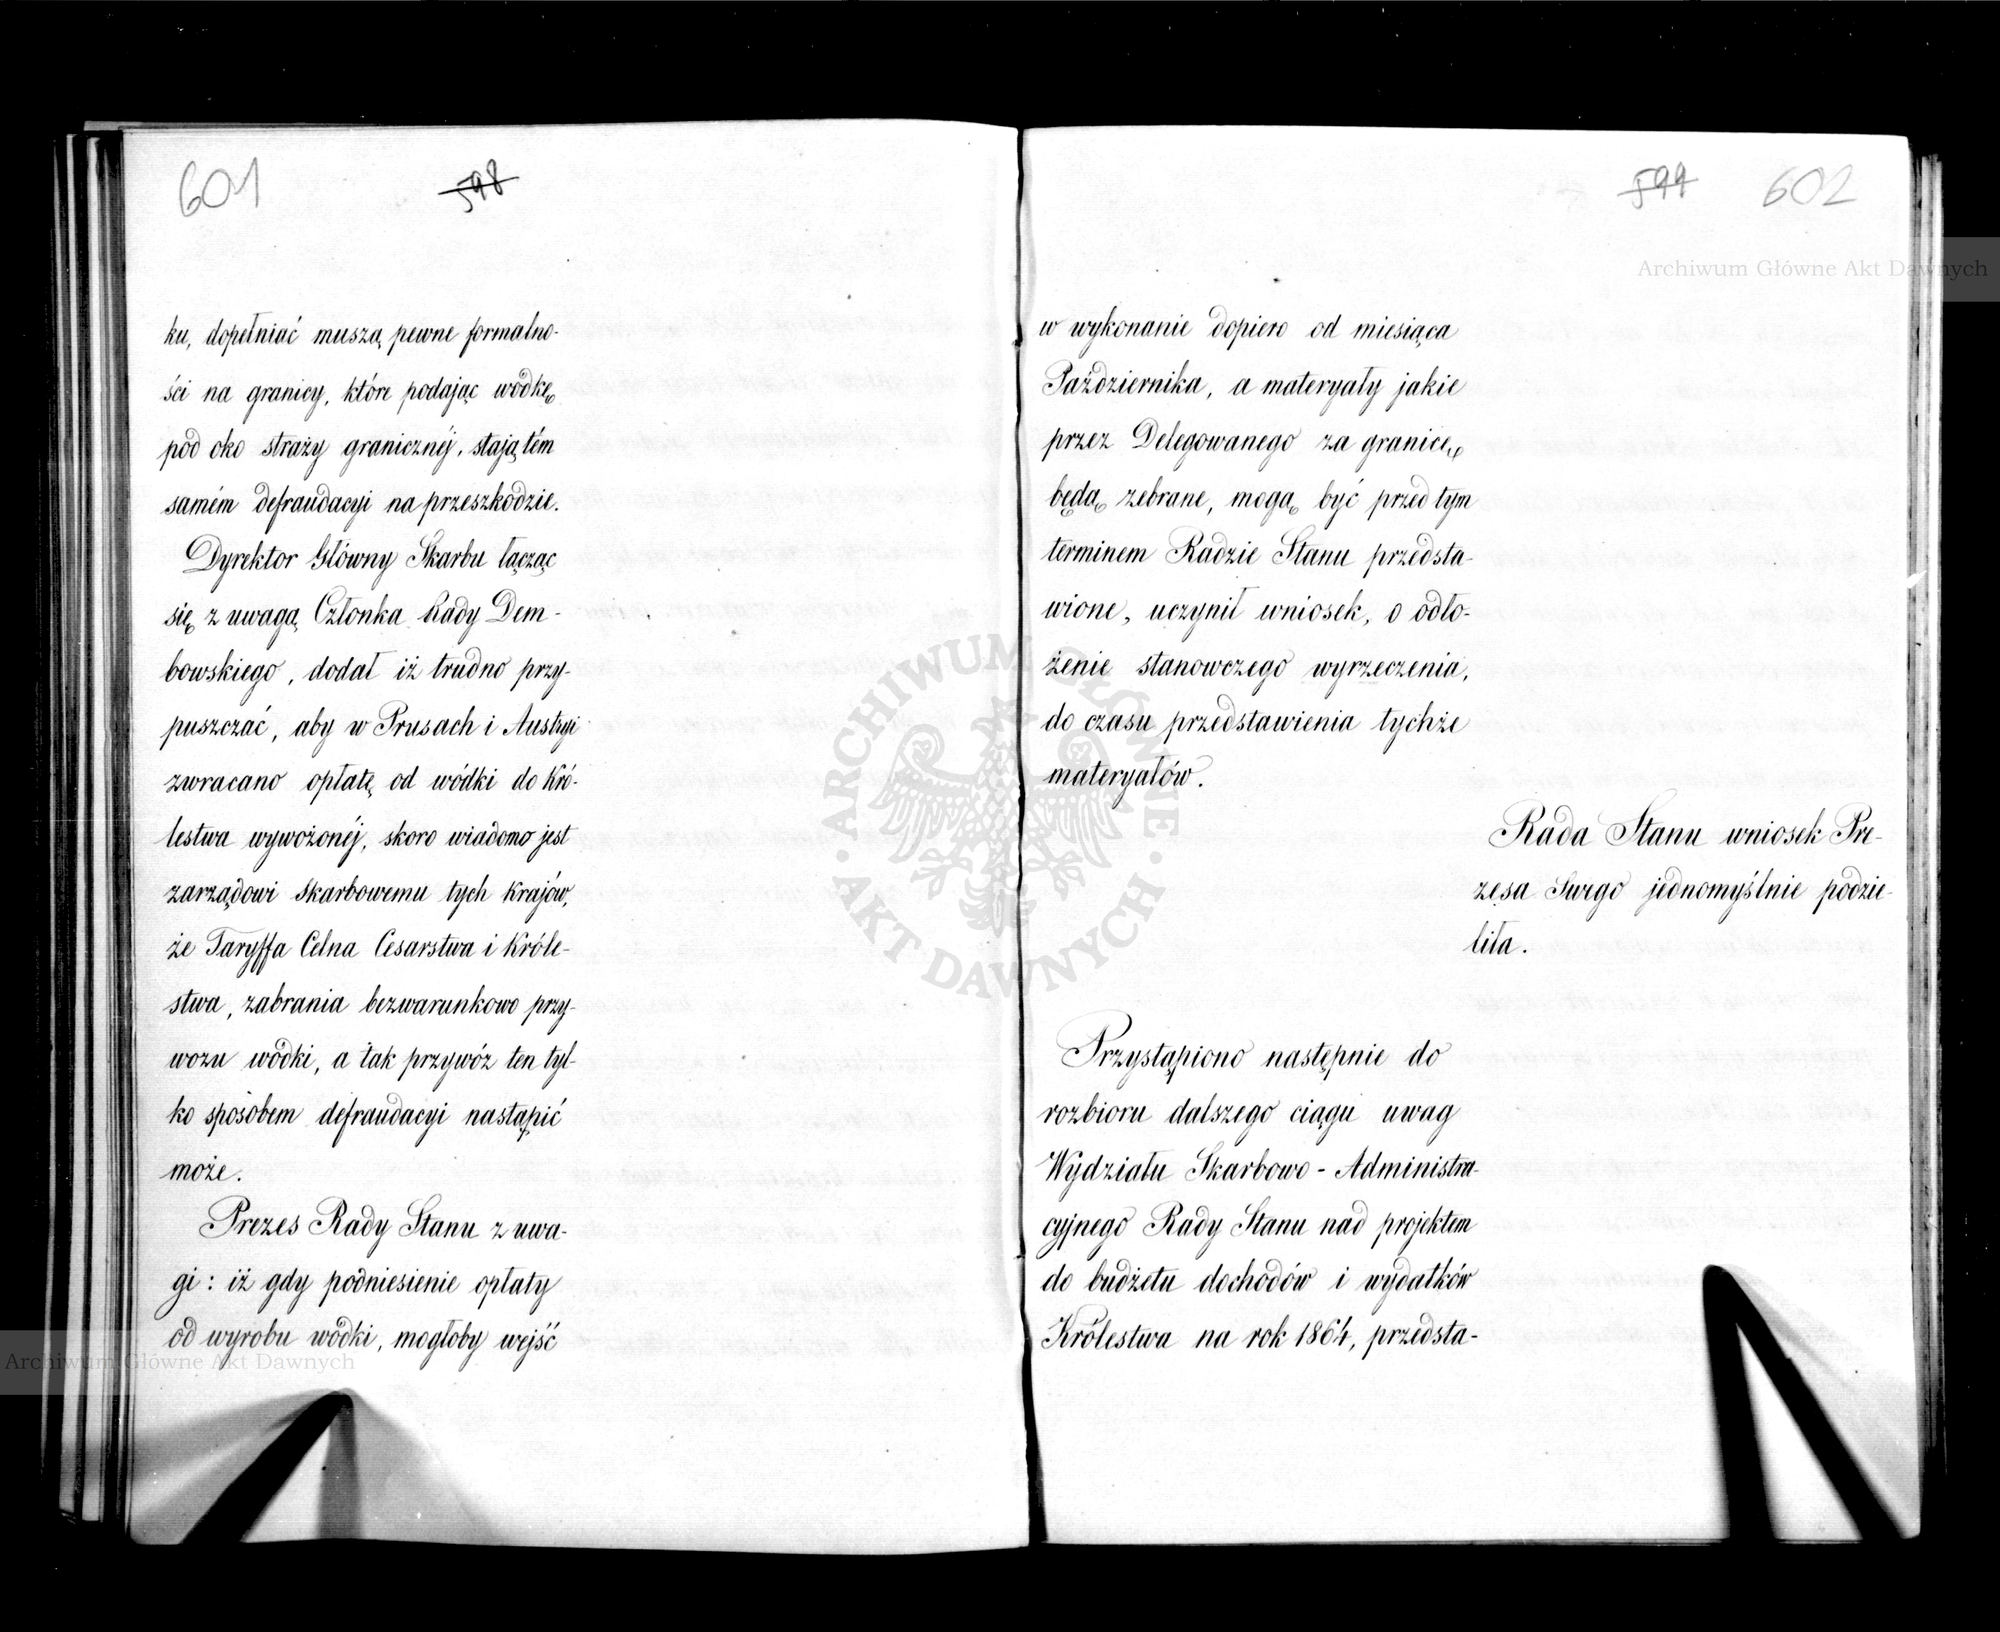 601
598
ku, dopełniać muszą pewne formalno-
ści na granicy, które podając wódkę
pod oko straży granicznéj, stają tém
samém defraudacyi na przeszkodzie.
Dyrektor Główny Skarbu łącząc
się z uwagą Członka Rady Dem-
bowskiego, dodał iż trudno przy-
puszczać, aby w Prusach i Austryi
zwracano opłatę od wódki do Kró-
lestwa wywożonéj, skoro wiadomo jest
zarządowi skarbowemu tych krajów,
że Taryffa Celna Cesarstwa i Króle-
stwa, zabrania bezwarunkowo przy-
wozu wódki, a tak przywóz ten tyl-
ko sposobem defraudacyi nastąpić
może.
Prezes Rady Stanu z uwa-
gi: iż gdy podniesienie opłaty
od wyrobu wódki, mogłoby wejść
599
602
w wykonanie dopiero od miesiąca
Października, a materyały jakie
przez Delegowanego za granicę
będą zebrane, mogą być przed tym
terminem Radzie Stanu przedsta-
wione, uczynił wniosek, o odło-
żenie stanowczego wyrzeczenia,
do czasu przedstawienia tychże
materyałów.
Rada Stanu wniosek Pre-
zesa Swego jednomyślnie podzie-
liła.
Przystąpiono następnie do
rozbioru dalszego ciągu uwag
Wydziału Skarbowo-Administra-
cyjnego Rady Stanu nad projektem
do budżetu dochodów i wydatków
Królestwa na rok 1864, przedsta-
Archiwum Główne Akt Dawnych
Archiwum Główne Akt Dawnych
ARCHIWUM GŁÓWNE
AKT DAWNYCH